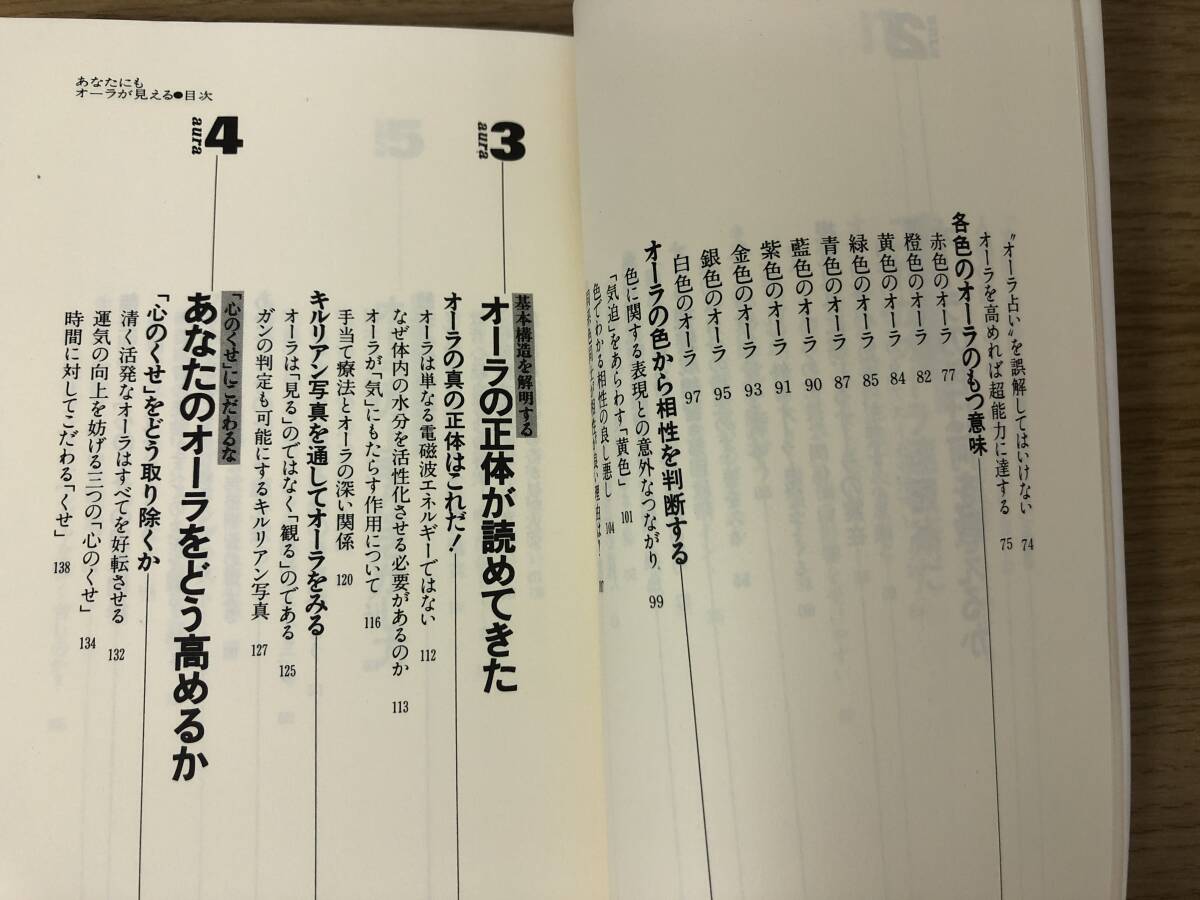 “オーラ占い”を誤解してはいけない 74
オーラを高めれば超能力に達する 75
各色のオーラのもつ意味
赤色のオーラ 77
橙色のオーラ 82
黄色のオーラ 84
緑色のオーラ 85
青色のオーラ 87
藍色のオーラ 90
紫色のオーラ 91
金色のオーラ 93
銀色のオーラ 95
白色のオーラ 97
オーラの色から相性を判断する
色に関する表現との意外なつながり 99
「気迫」をあらわす「黄色」 101
色でわかる相性の良し悪し 104
あなたにも
オーラが見える●目次
3
aura
基本構造を解明する
オーラの正体が読めてきた
オーラの真の正体はこれだ!
オーラは単なる電磁波エネルギーではない 112
なぜ体内の水分を活性化させる必要があるのか 113
オーラが「気」にもたらす作用について 116
手当て療法とオーラの深い関係 120
キルリアン写真を通してオーラをみる
オーラは「見る」のではなく「観る」のである 125
ガンの判定も可能にするキルリアン写真 127
4
aura
「心のくせ」にこだわるな
あなたのオーラをどう高めるか
「心のくせ」をどう取り除くか
清く活発なオーラはすべてを好転させる 132
運気の向上を妨げる三つの「心のくせ」 134
時間に対してこだわる「くせ」 138